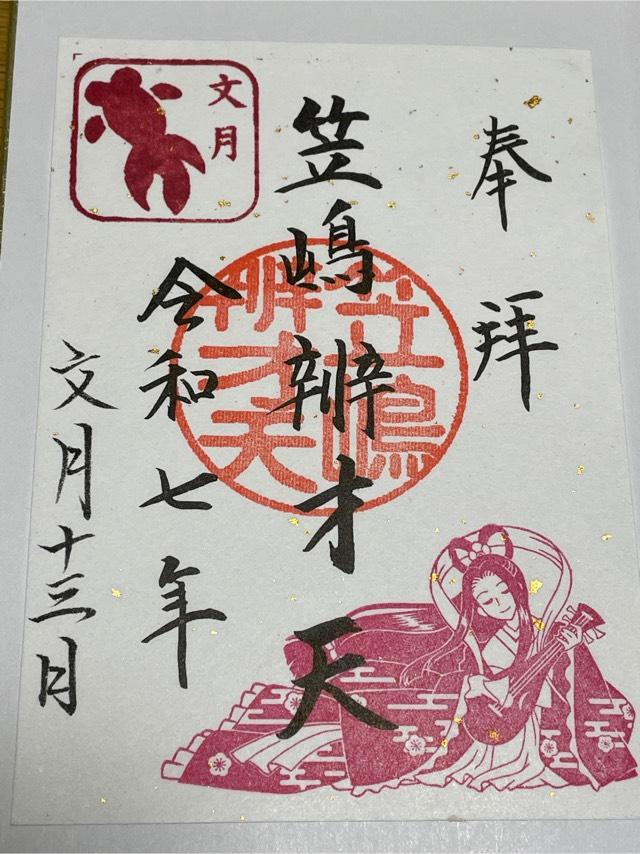 奉拝
笠嶋辨才天
笠嶋
辨才天
令和七年
文月十三日
文月